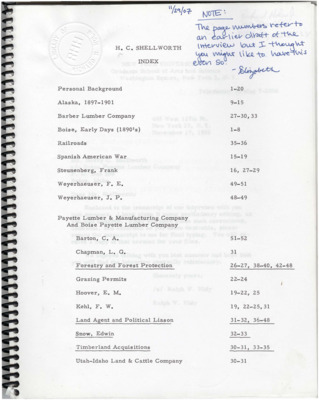 11/29/67
NOTE!
The page numbers refer to
an earlier draft of the
interview but I thought
you might like to have this
even so.
- Elizabeth
H. C. SHELLWORTH
INDEX
Personal Background 1-20
Alaska, 1897-1901 9-15
Barber Lumber Company 27-30, 33
Boise, Early Days (1890's) 1-8
Railroads 35-36
Spanish American War 15-19
Steunenberg, Frank 16, 27-29
Weyerhaeuser, F. E. 49-51
Weyerhaeuser, J. P. 48-49
Payette Lumber & Manufacturing Company
And Boise Payette Lumber Company
Barton, C. A. 51-52
Chapman, L. G. 31
Forestry and Forest Protection 26-27, 38-40, 42-48
Grazing Permits 22-24
Hoover, E. M. 19-22, 25
Kehl, F. W. 19, 22-25, 31
Land Agent and Political Liason 31-32, 36-48
Snow, Edwin 32-33
Timberland Acquisitions 30-31, 33-35
Utah-Idaho Land & Cattle Company 30-31